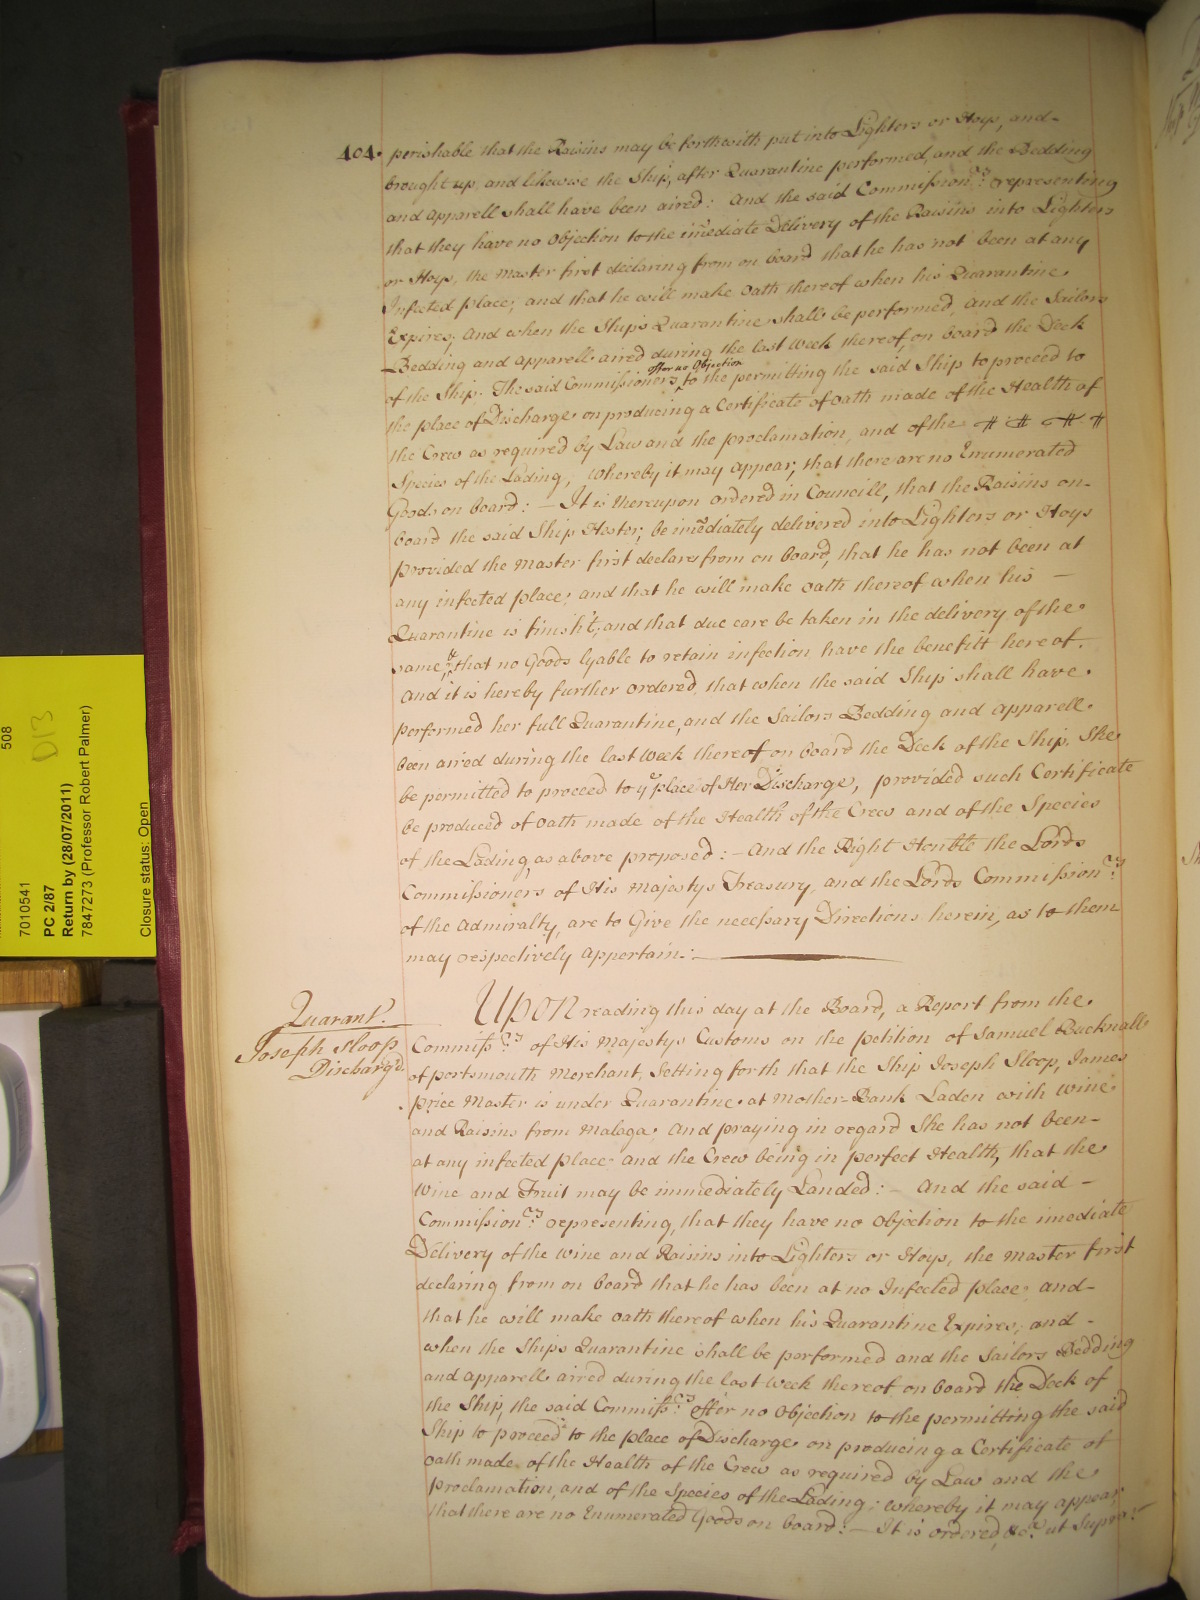 404. perishable that the Raisins may be forthwith put into Lighters or Hoys, and-
brought up, and likewise the Ship, after Quarantine performed, and the Bedding
and apparell shall have been aired: And the said Commission.rs representing
that they have no Objection to the imediate Delivery of the Raisins into Lighters
or Hoys, the Master first declaring from on board that he has not been at any
Infected place; and that he will make Oath thereof when his Quarantine
Expires; And when the Ships Quarantine shall be performed, and the Sailors
Bedding and apparell aired during the last Week thereof, on board the Deck
offer no Objection
of the Ship. The said Commissioners ‸ to the permitting the said Ship to proceed to
the place of Discharge on producing a Certificate of Oath made of the Health of
the Crew as required by Law and the proclamation, and of the # # # #
Species of the Lading; whereby it may appear, that there are no Enumerated
Goods on board: - It is thereupon ordered in Councill, that the Raisins on-
board the said Ship Hester, be imediately delivered into Lighters or Hoys
provided the Master first declares from on board, that he has not been at
any infected place; and that he will make Oath thereof when his -
Quarantine is finish't; and that due care be taken in the delivery of the
same, & that no Goods lyable to retain infection have the benefitt hereof.
And it is hereby further ordered, that when the said Ship shall have
performed her full Quarantine, and the Sailors Bedding and apparell
been aired during the last Week thereof on board the Deck of the Ship, She
be permitted to proceed to ye place of Her Discharge, provided such Certificate
be produced of Oath made of the Health of the Crew and of the Species
of the Lading, as above proposed: - And the Right Honble the Lords
Commissioners of His Majestys Treasury, and the Lords Commission.rs
of the Admiralty, are to Give the necessary Directions herein, as to them
may respectively appertain:-
Quarant.
Joseph Sloop
Discharg'd.
UPON reading this day at the Board, a Report from the
Commiss.rs of His Majestys Customs on the petition of Samuel Bucknall
of portsmouth Merchant, Setting forth that the Ship Joseph Sloop, James
price Master is under Quarantine at Mother-Bank Laden with Wine
and Raisins from Malaga; And praying in regard She has not been-
at any infected place and the Crew being in perfect Health, that the
Wine and Fruit may be immediately Landed: - And the said -
Commission.rs representing, that they have no Objection to the imediate
Delivery of the Wine and Raisins into Lighters or Hoys, the Master first
declaring from on board that he has been at no Infected place; and-
that he will make Oath thereof when his Quarantine Expires; and -
when the Ships Quarantine shall be performed and the Sailors Bedding
and apparell aired during the last Week thereof on board the Deck of
the Ship, the said Commiss.rs offer no Objection to the permitting the said
Ship to proceed to the place of Discharge on producing a Certificate of
Oath made of the Health of the Crew as required by Law and the
proclamation, and of the Species of the Lading; whereby it may appear,
that there are no Enumerated Goods on board: - It is ordered, &c.a ut Supra.
508
D13
7010541
PC 2/87
Return by (28/07/2011)
7847273 (Professor Robert Palmer)
Closure status: Open